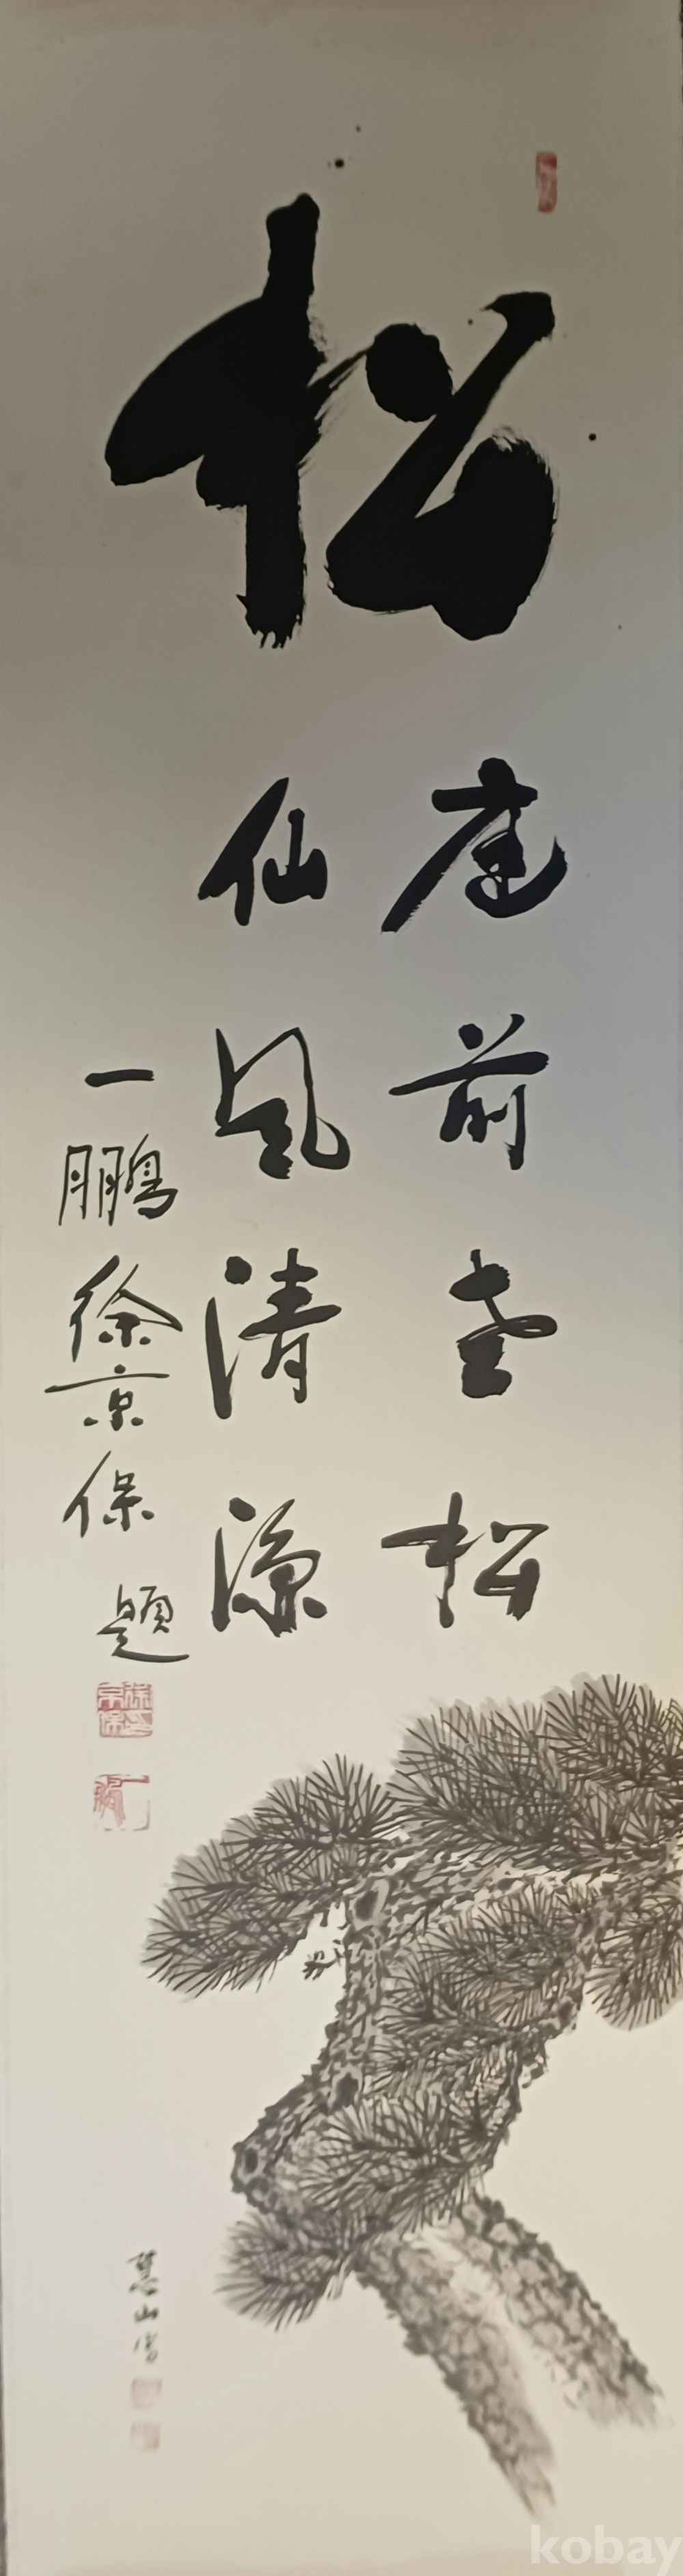 松
庭前老松
仙風清凉
一鵬徐京保題
慧山
kobay